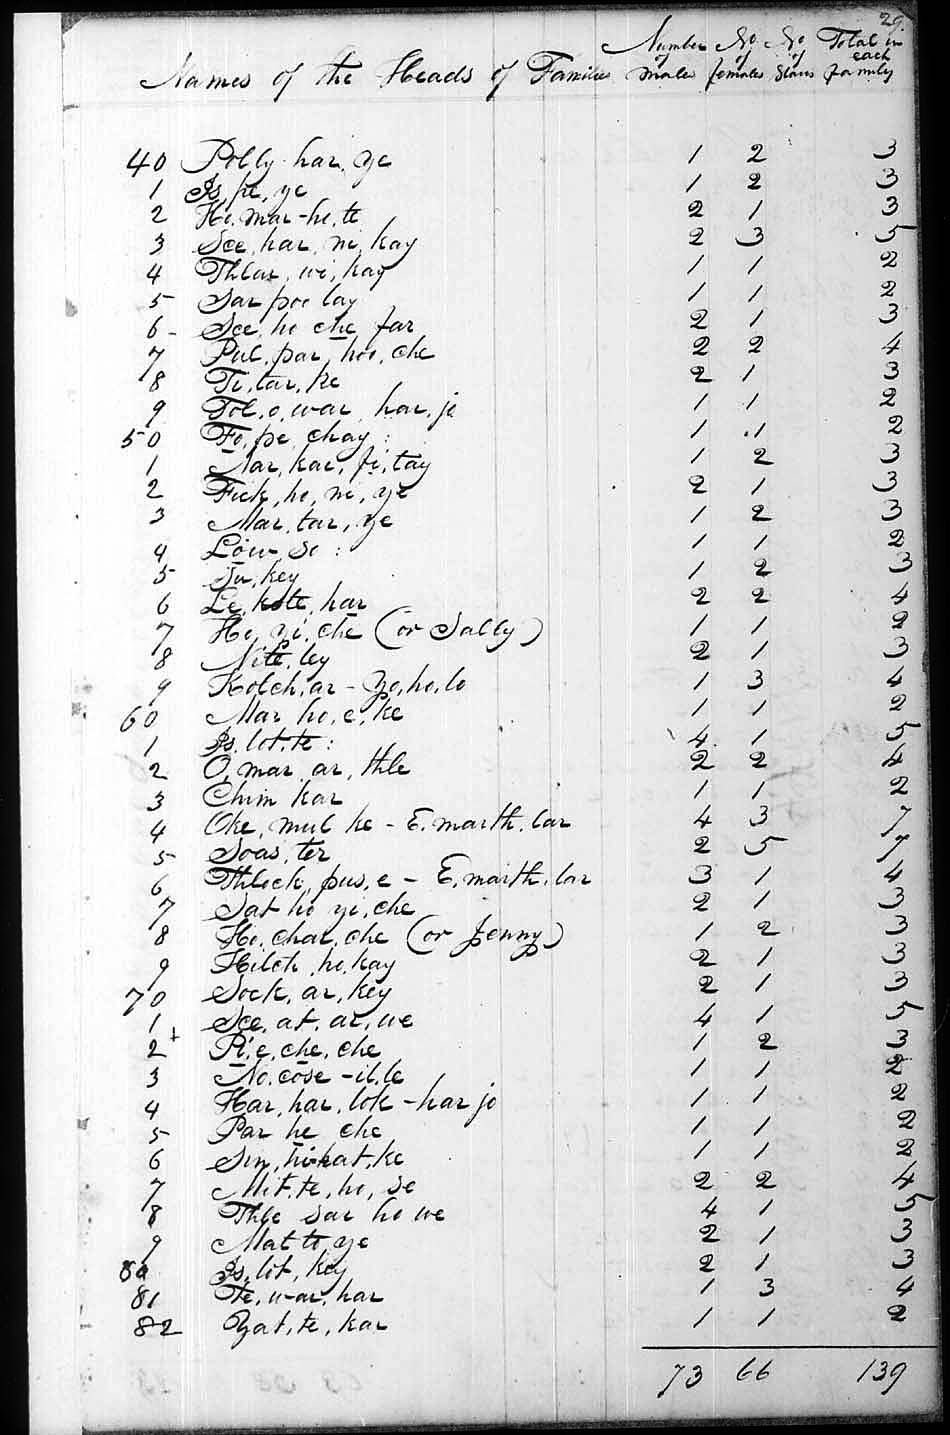 29.
Names of the Heads of Families Number of males No of females No of Slaves Total in each family
40 Polly har, ye 1 2 3
1 Is, pe, ye 1 2 3
2 Ho, mar-he, te 2 1 3
3 See, har, ne, kay 2 3 5
4 Thlar, wi, kay 1 1 2
5 Sar poe lay 1 1 2
6 See, ho che far 2 1 3
7 Pul, par, hoo, che 2 2 4
8 Ti, tar, ke 2 1 3
9 Tol, o, war har, jo 1 1 2
50 Fo, pe chay : 1 1 2
1 Nar, kar, fi, tay 1 2 3
2 Fick, ho, ne, ye 2 1 3
3 Mar, tar, ye 1 2 3
4 Low, se : 1 1 2
5 Su, key 1 2 3
6 Le, kote, har 2 2 4
7 Ho, yi, che (or Sally) 1 1 2
8 Nite, ley 2 1 3
9 Kolch, ar - Yo, ho, lo 1 3 4
60 Mar ho, e, ke 1 1 2
1 Is, lot, te : 4 1 5
2 O, mar, ar, thle 2 2 4
3 Chim kar 1 1 2
4 Oke, mul ke - E. marth, lar 4 3 7
5 Soas, ter 2 5 7
6 Thlock, pus, e - E, marth, lar 3 1 4
7 Sat ho yi, che 2 1 3
8 Ho, char, che (or Jenny) 1 2 3
9 Hilch, ho, kay 2 1 3
70 Sock, ar, key 2 1 3
1 See, at, ar, we 4 1 5
2 Pi, e, che, che 1 2 3
3 No, cose - il, le 1 1 2
4 Har, har, lok - har jo 1 1 2
5 Par he che 1 1 2
6 1 1 2
7 Mit, te, ho, se 2 2 4
8 Thle sar ho we 4 1 5
9 Mat to ye 2 1 3
80 Is, lot, key 2 1 3
81 Te, war, har 1 3 4
82 Yat, te, kar 1 1 2
73 66 139